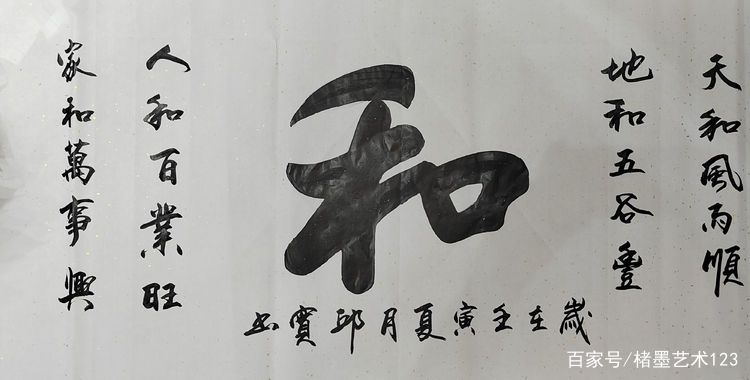 天和風雨順
地和五谷豐
和
人和百業旺
家和萬事興
歲在壬寅夏月邱實书
百家号/楮墨艺术123